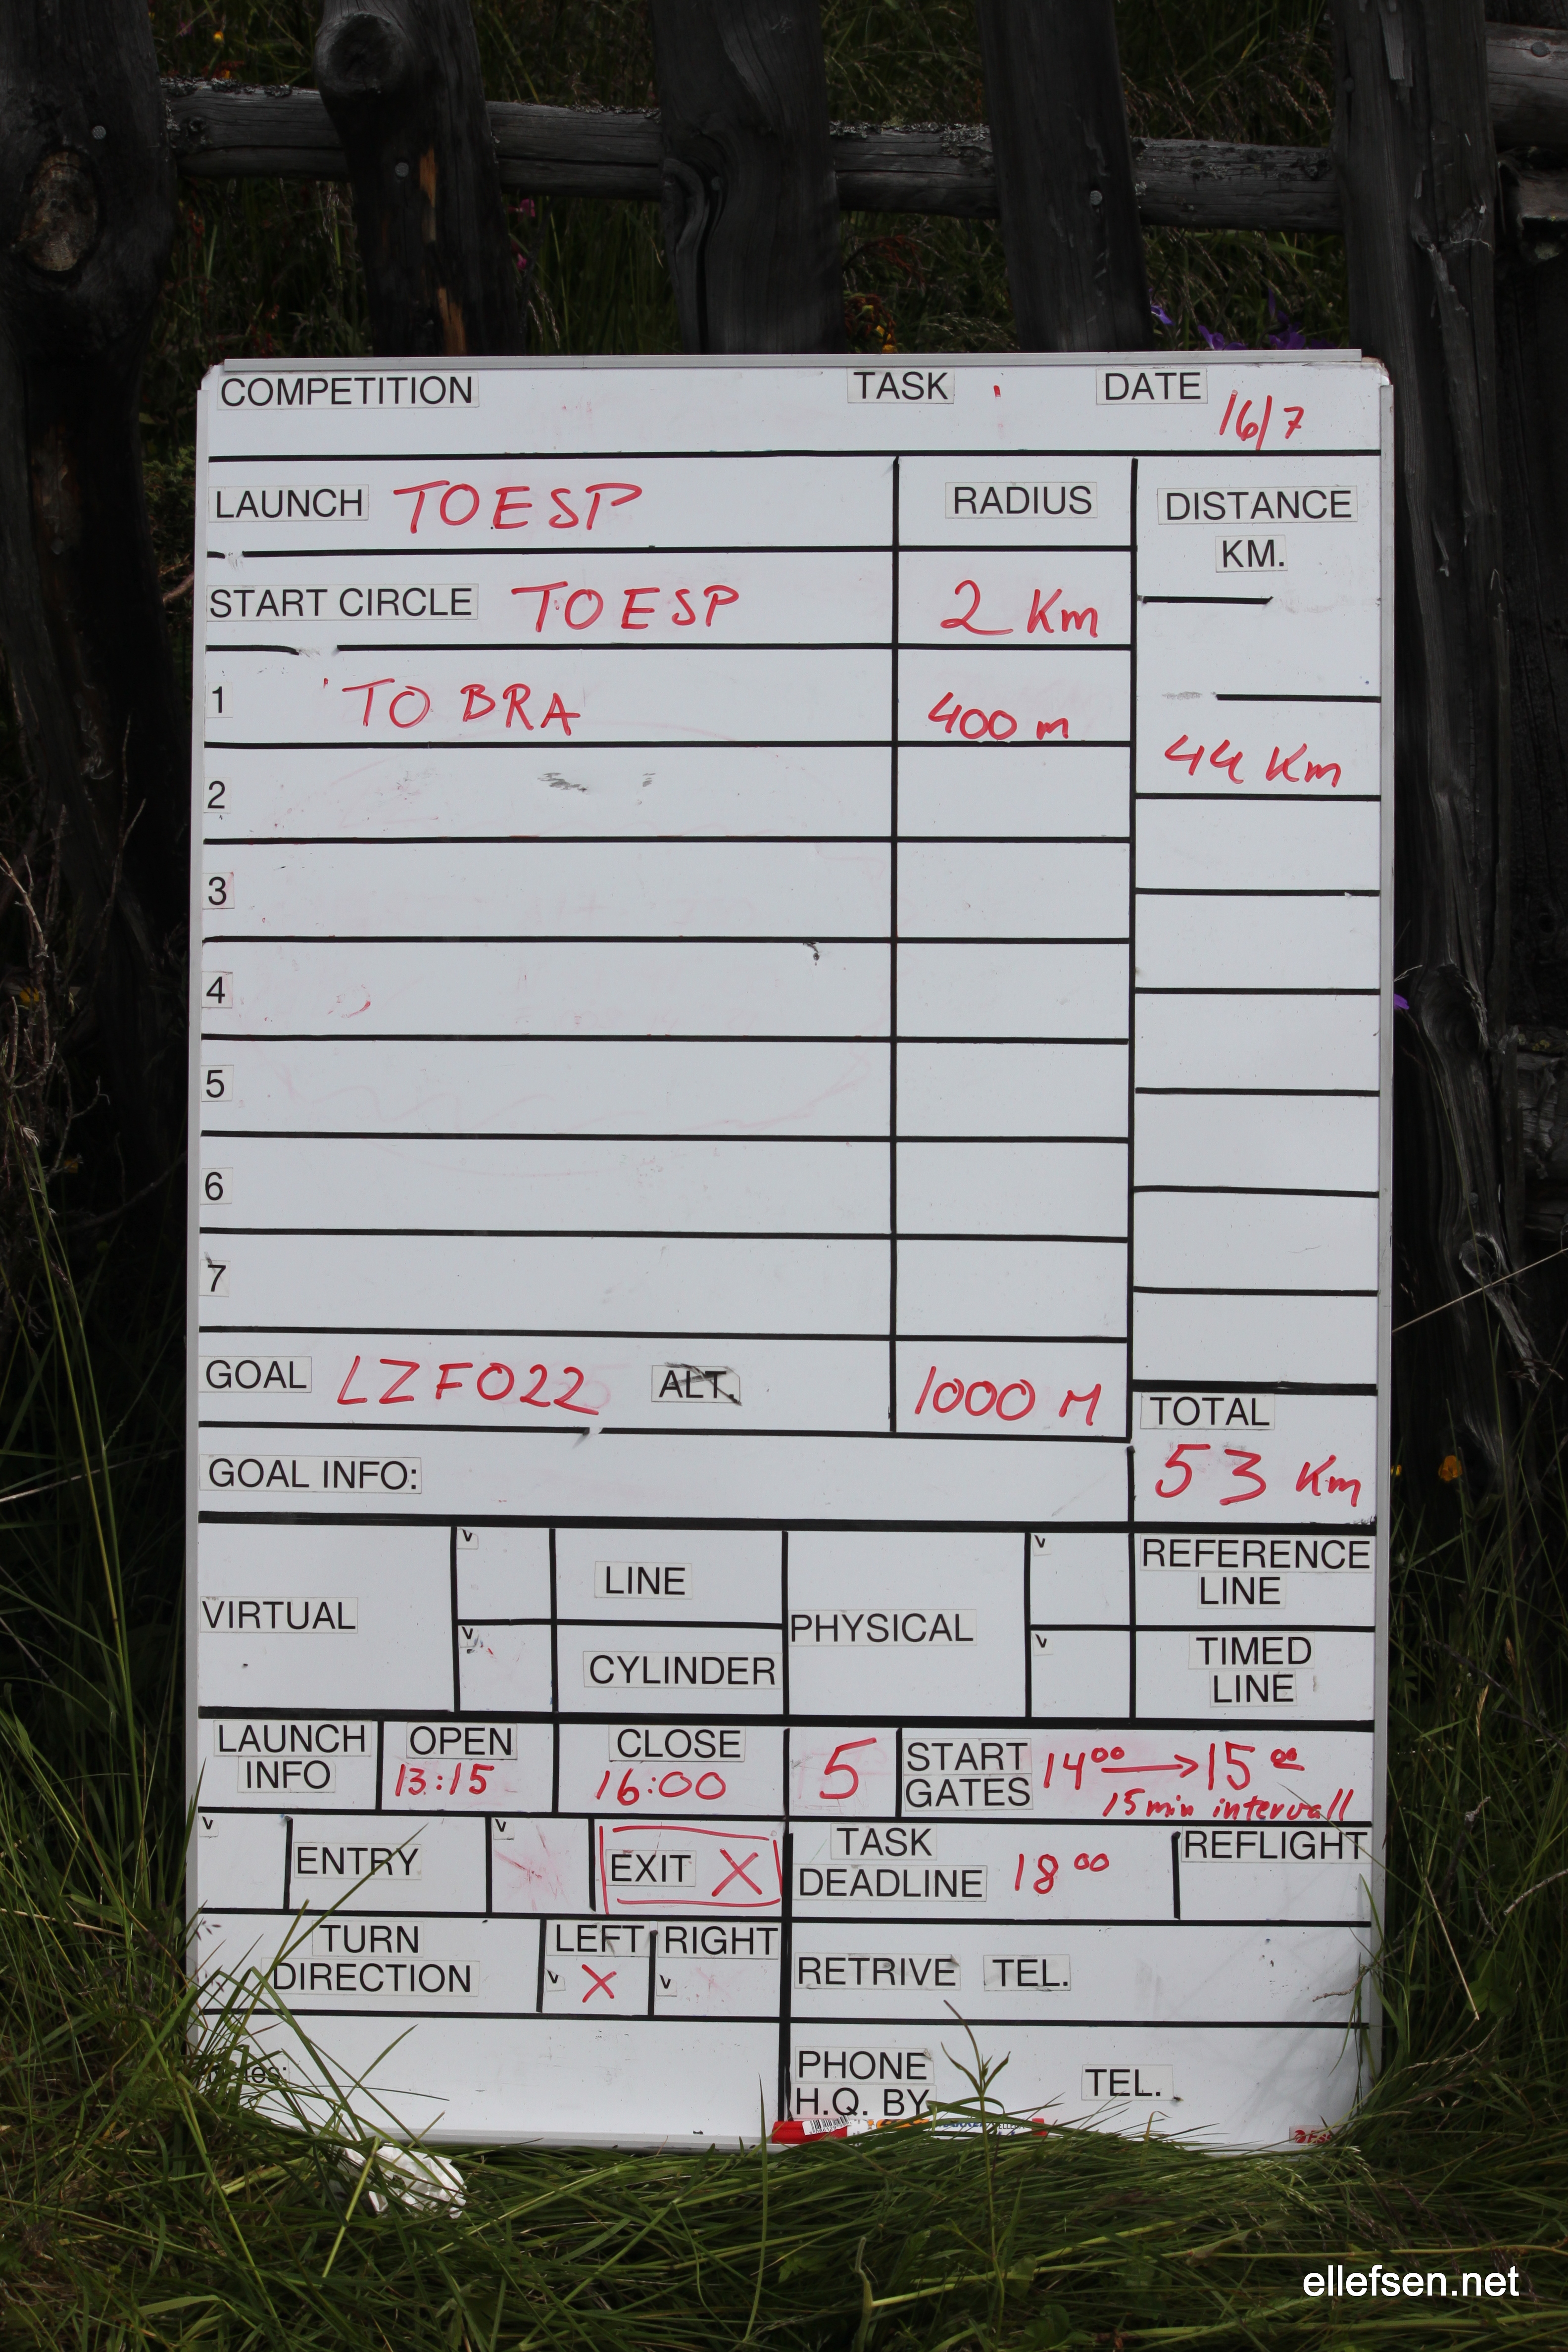 COMPETITION TASK DATE 16/7
LAUNCH TOESP RADIUS DISTANCE
KM.
START CIRCLE TOESP 2 Km
1 TO BRA 400 m
44 Km
2
3
4
5
6
7
GOAL LZFO22 ALT. 1000 M
TOTAL
53 Km
GOAL INFO:
VIRTUAL
v LINE
v CYLINDER
PHYSICAL
v REFERENCE
LINE
v TIMED
LINE
LAUNCH
INFO
OPEN
13:15
CLOSE
16:00
5 START
GATES
14⁰⁰ → 15⁰⁰
15 min intervall
v ENTRY v EXIT X
TASK
DEADLINE 18⁰⁰
REFLIGHT
TURN
DIRECTION
LEFT RIGHT
v X v
RETRIVE TEL.
PHONE
H.Q. BY
TEL.
ellefsen.net